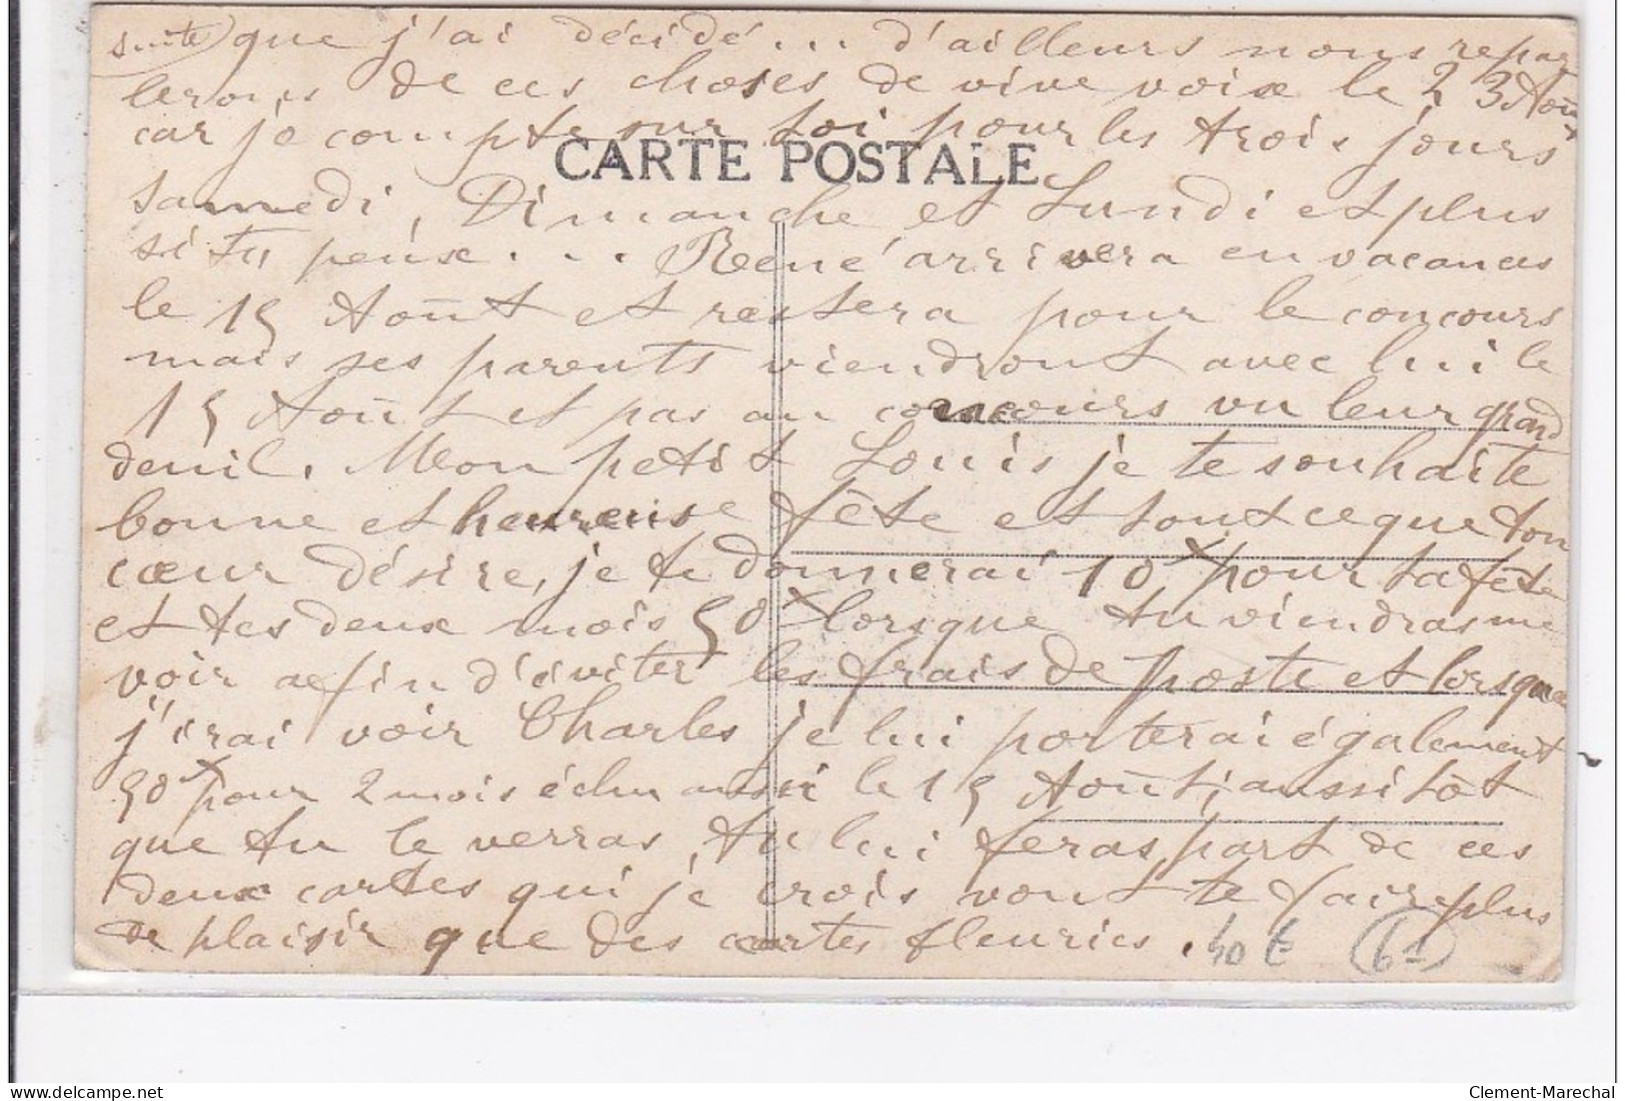 suite que j'ai décidé... d'ailleurs nous repar
lerons de ces choses de vive voix le 23 Août
car je compte sur toi pour les trois jours
CARTE POSTALE
samedi, Dimanche et Lundi et plus
si tu peux... René arrivera en vacances
le 15 Août et restera pour le concours
mais ses parents viendront avec lui le
15 Août et pas au concours vu leur grand
deuil. Mon petit Louis je te souhaite
bonne et heureuse fête et tout ce que ton
cœur désire, je te donnerai 10f pour ta fête
et tes deux mois 50f lorsque tu viendras me
voir afin d'éviter les frais de poste et lorsque
j'irai voir Charles je lui porterai également
50f pour 2 mois échu aussi le 15 Août, aussitôt
que tu le verras, tu lui feras part de ces
deux cartes qui je crois vont te faire plus
de plaisir que des cartes fleuries.
40 €
61
delcampe.net
Clement-Marechal